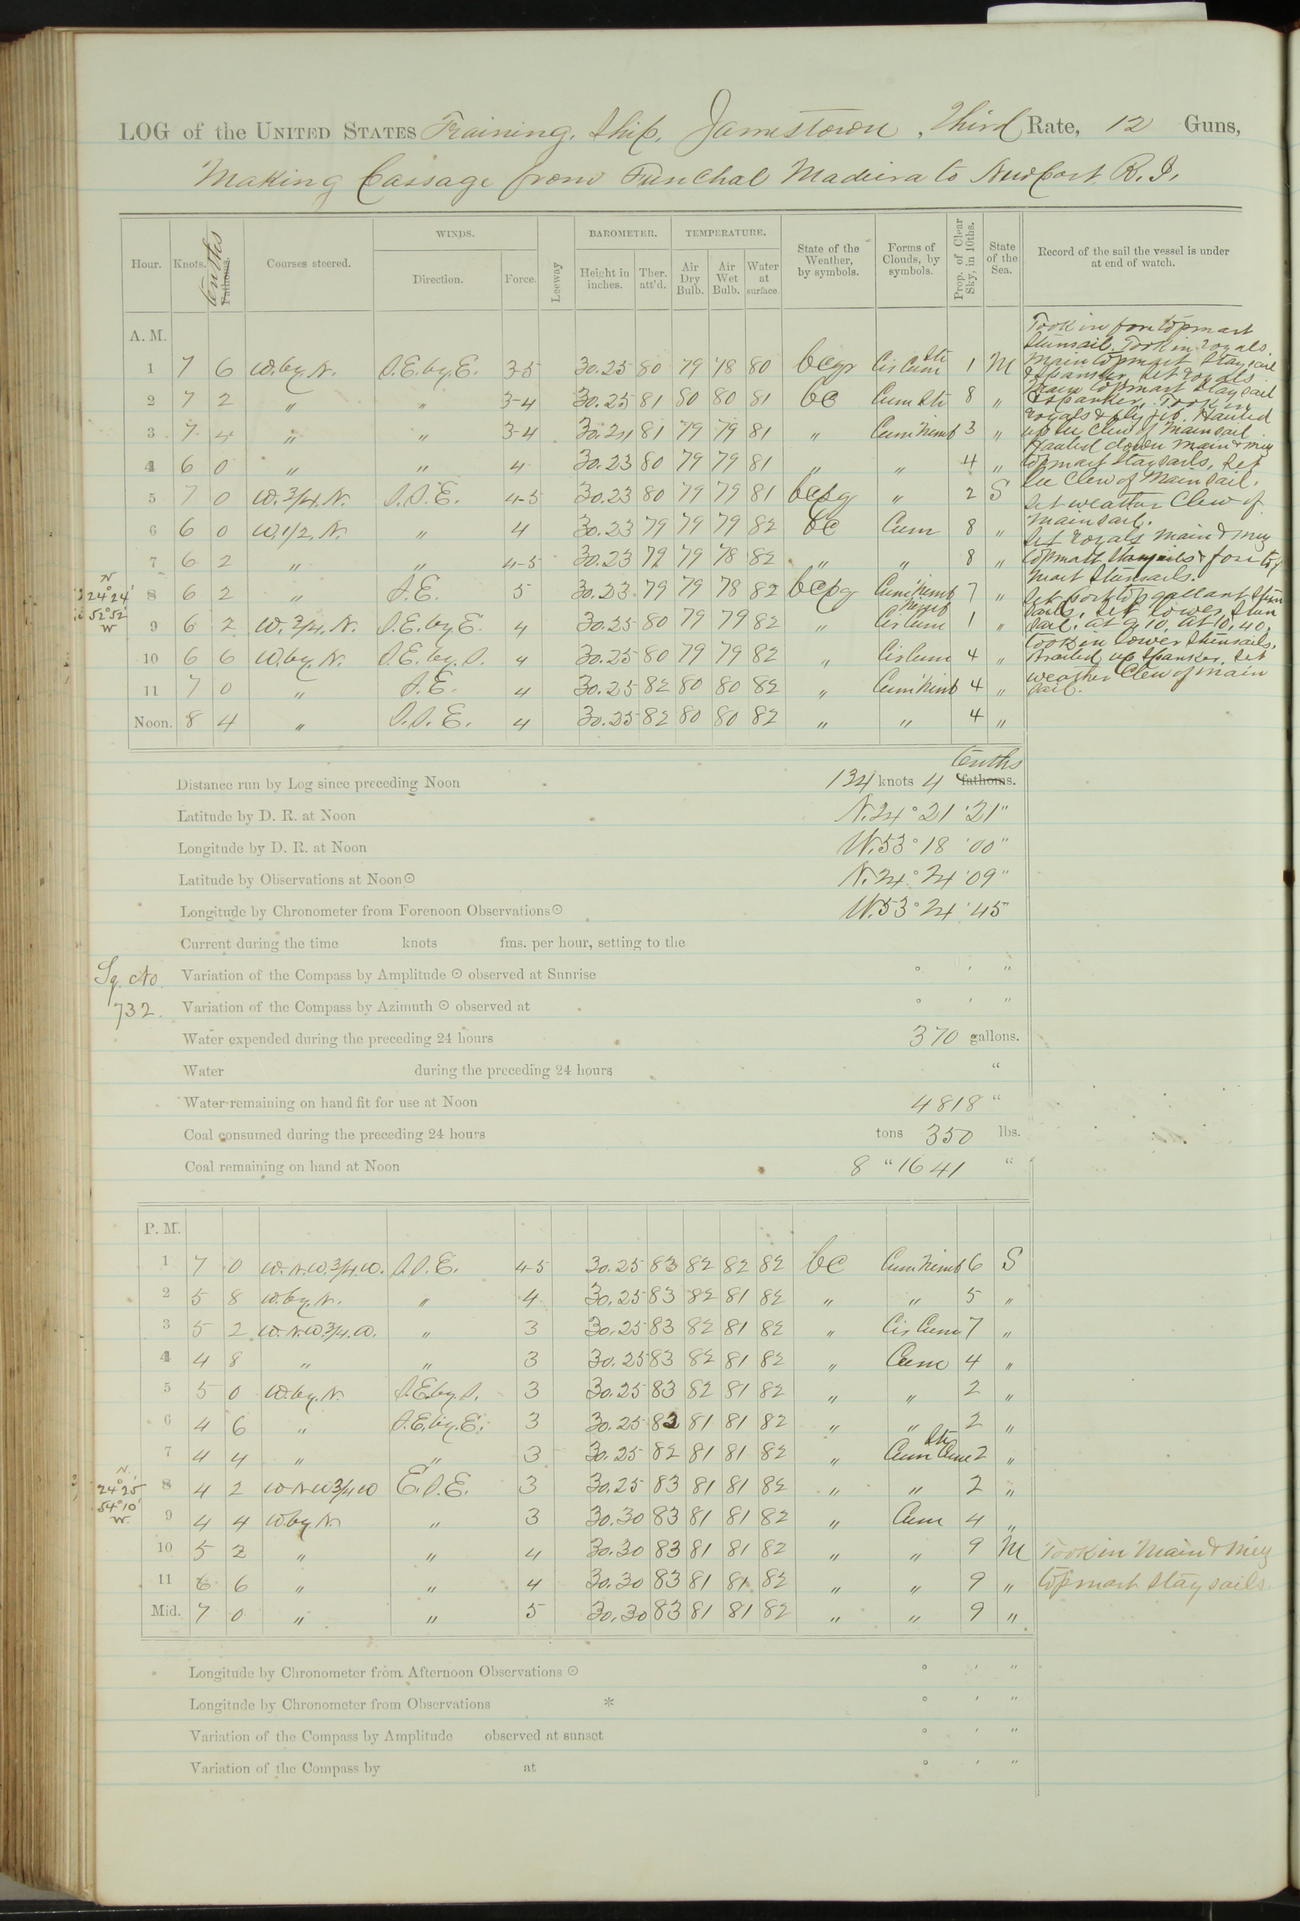 LOG of the UNITED STATES Training Ship, Jamestown, Third Rate, 12 Guns,
Making Passage from Funchal Madeira to Newport R.I.
Hour. Knots. Tenths Fathoms. Courses steered. WINDS. Direction. Force. Leeway BAROMETER. Height in inches. Ther. att'd. TEMPERATURE. Air Dry Bulb. Air Wet Bulb. Water at surface. State of the Weather, by symbols. Forms of Clouds, by symbols. Prop. of Clear Sky, in 10ths. State of the Sea. Record of the sail the vessel is under at end of watch.
A. M.
1 7 6 W. by N. S.E. by E. 3-5 30.25 80 79 78 80 bcqr Cis Cum Str 1 M
2 7 2 " " 3-4 30.25 81 80 80 81 bc Cum Str 8 "
3 7 4 " " 3-4 30.24 81 79 79 81 " Cum Nimb 3 "
4 6 0 " " 4 30.23 80 79 79 81 " " 4 "
5 7 0 W. 3/4. N. S.S.E. 4-5 30.23 80 79 79 81 bcpq " 2 S
6 6 0 W. 1/2. N. " 4 30.23 79 79 79 82 bc Cum 8 "
7 6 2 " " 4-5 30.23 79 79 78 82 " " 8 "
8 6 2 " S.E. 5 30.23 79 79 78 82 bcpq Cum Nimb 7 "
N 24°24' 52°52' W
9 6 2 W. 3/4. N. S.E. by E. 4 30.25 80 79 79 82 " Cis Cum Nimb 1 "
10 6 6 W. by N. S.E. by S. 4 30.25 80 79 79 82 " Cis Cum 4 "
11 7 0 " S.E. 4 30.25 82 80 80 82 " Cum Nimb 4 "
Noon. 8 4 " S.S.E. 4 30.25 82 80 80 82 " " 4 "
Took in fore topmast
stunsail. Took in royals
main topmast staysail
& spanker. Set royals
main topmast staysail
& spanker. Took in
royals & fly jib. Hauled
up lee clew of mainsail.
Hauled down main & miz
topmast staysails, set
lee clew of mainsail.
Set weather clew of
mainsail.
Set royals main & miz
topmast staysails & fore top
mast stunsails.
Set port topgallant stun
sails, set lower stun
sail. at 9.10. At 10.40.
took in lower stunsails.
Brailed up spanker. Set
weather clew of main
sail.
Distance run by Log since preceding Noon 134 knots 4 tenths fathoms.
Latitude by D. R. at Noon N. 24° 21' 21"
Longitude by D. R. at Noon W. 53° 18' 00"
Latitude by Observations at Noon☉ N. 24° 24' 09"
Longitude by Chronometer from Forenoon Observations☉ W. 53° 24' 45"
Current during the time knots fms. per hour, setting to the
Sg. No.
732.
Variation of the Compass by Amplitude ☉ observed at Sunrise ° ' "
Variation of the Compass by Azimuth ☉ observed at ° ' "
Water expended during the preceding 24 hours 370 gallons.
Water during the preceding 24 hours "
Water remaining on hand fit for use at Noon 4818 "
Coal consumed during the preceding 24 hours tons 350 lbs.
Coal remaining on hand at Noon 8 " 1641 "
P. M.
1 7 0 W.N.W. 3/4. W. S.S.E. 4-5 30.25 83 82 82 82 bc Cum Nimb 6 S
2 5 8 W. by N. " 4 30.25 83 82 81 82 " " 5 "
3 5 2 W.N.W. 3/4. W. " 3 30.25 83 82 81 82 " Cis Cum 7 "
4 4 8 " " 3 30.25 83 82 81 82 " Cum 4 "
5 5 0 W. by N. S.E. by S. 3 30.25 83 82 81 82 " " 2 "
6 4 6 " S.E. by E. 3 30.25 83 81 81 82 " " 2 "
7 4 4 " " 3 30.25 82 81 81 82 " Cum Str Cum 2 "
8 4 2 W.N.W. 3/4 W E.S.E. 3 30.25 83 81 81 82 " " 2 "
N. 24°25' 54°10' W.
9 4 4 W. by N. " 3 30.30 83 81 81 82 " Cum 4 "
10 5 2 " " 4 30.30 83 81 81 82 " " 9 M Took in Main & Miz
11 6 6 " " 4 30.30 83 81 81 82 " " 9 " topmast staysails.
Mid. 7 0 " " 5 30.30 83 81 81 82 " " 9 "
Longitude by Chronometer from Afternoon Observations ☉ ° ' "
Longitude by Chronometer from Observations * ° ' "
Variation of the Compass by Amplitude observed at sunset ° ' "
Variation of the Compass by at ° ' "